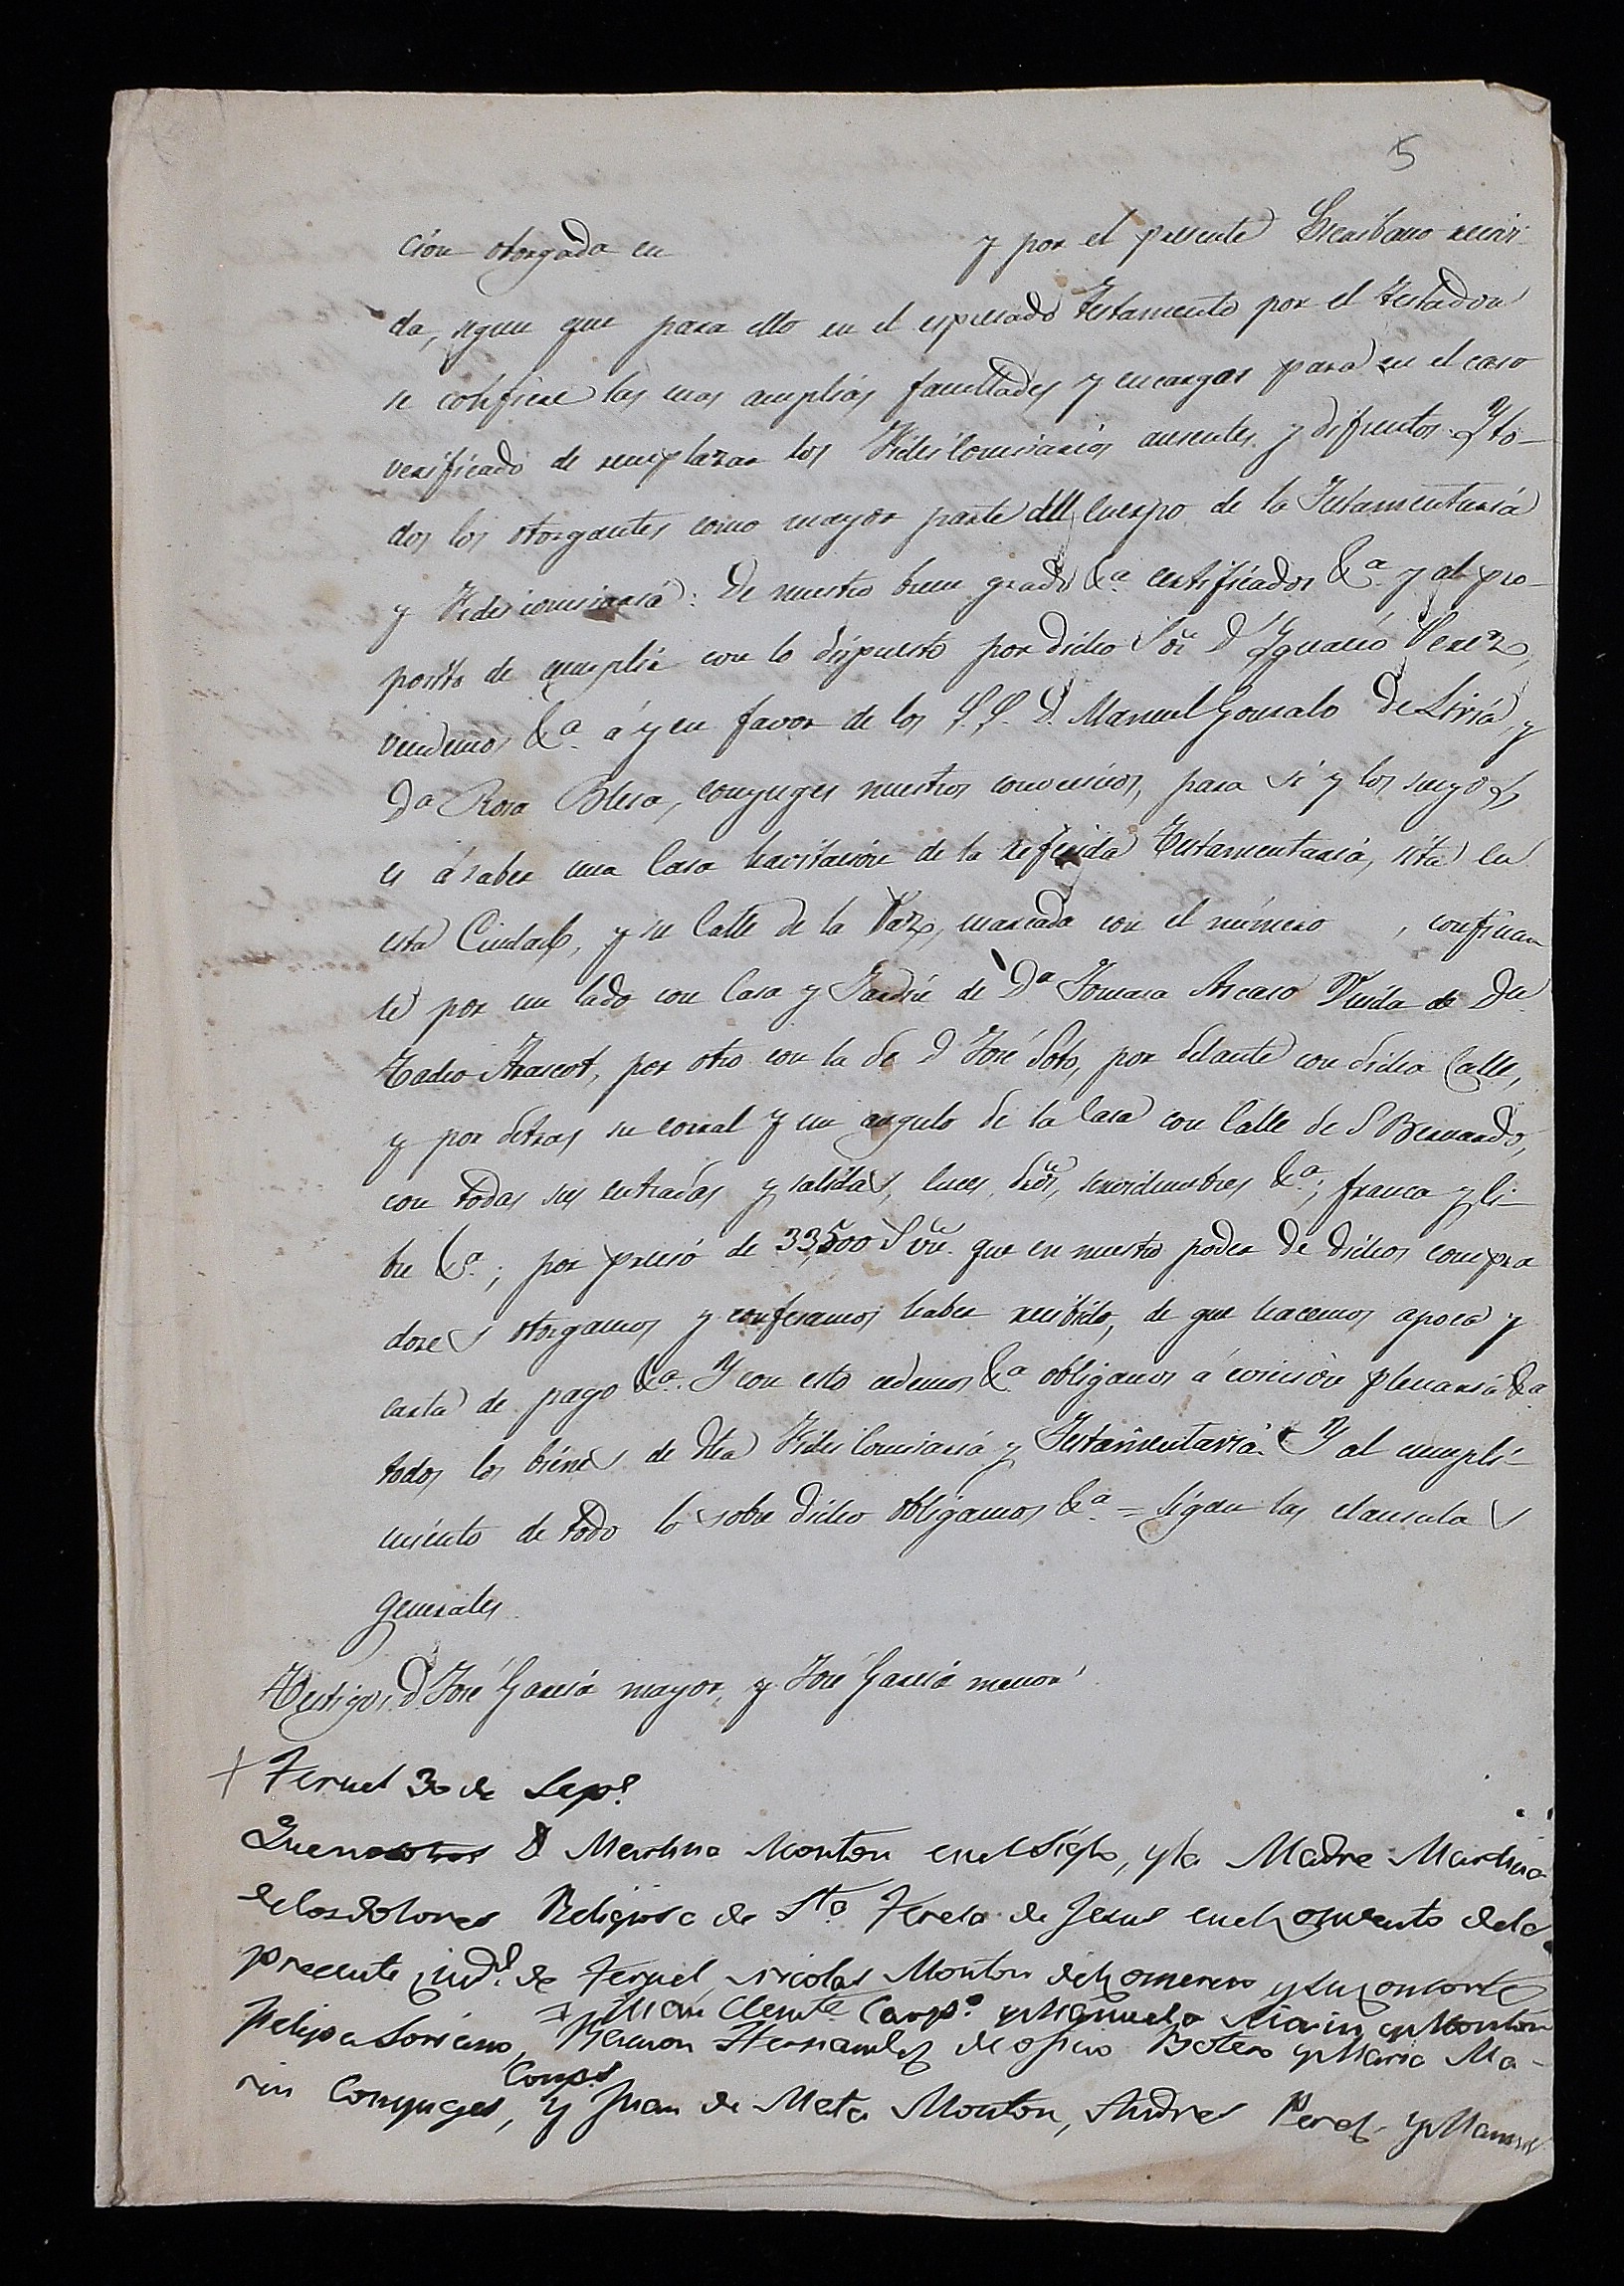 5
cion otorgada en y por el presente Escribano recivi-
da, segun que para ello en el espresado Testamento por el Testador
se confiere las mas amplias facultades y encargas para en el caso
verificado de remplazar los Fideicomisarios ausentes y difuntos. Y to-
dos los otorgantes como mayor parte del Cuerpo de la Testamentaria
y Fideicomisaria: De nuestro buen grado &a. certificados &a. y al pro-
posito de cumplir con lo dispuesto por dicho Sor. Dn. Ygnacio Perez,
vendemos &a. á y en favor de los S.S. D. Manuel Gonzalo De Liria, y
Da Rosa Blesa, conyuges nuestros convecinos, para sí y los suyos
es á saber una Casa havitacion de la referida Testamentaria, sita en
esta Ciudad, y su Calle de la Paz, marcada con el número , confinan
te por un lado con Casa y Jardin de Da Tomasa Ascaso Viuda de Dn.
Tadeo Arascot, por otro con la de D José Soto, por delante con dicha Calle,
y por detras su corral y un angulo de la Casa con Calle de S Bernardo,
con todas sus entradas y salidas, luces, dros, servidumbres &a.; franca y li-
bre &a.; por precio de 33,500 Svn. que en nuestro poder de dichos compra
dores otorgamos y confesamos haber recibido, de que hacemos apoca y
carta de pago &a. Y con esto cedemos &a. obligamos á eviccion plenaria &a
todos los bienes de dha Fideicomisaria y Testamentaria. Y al cumpli-
miento de todo lo sobre dicho obligamos &a. = sigan las clausulas
generales
Testigos D. José Garcia mayor, y José Garcia menor
+ Teruel 30 de Sepe.
Que nosotros D Martina Monton en el Siglo, y la Madre Martina
de los dolores Religiosa de Sta Teresa de Jesus en el convento de la
presente Ciud. de Teruel, Nicolas Monton del comercio y su consorte
+ Juan Clemte. Carpo. y Manuela Marin y Monton
Felipa Soriano, Ramon Hernandez de oficio Botero y Maria Ma-
Conps.
rin Conyuges, y Juan de Mata Monton, Andres Perez y Manuel